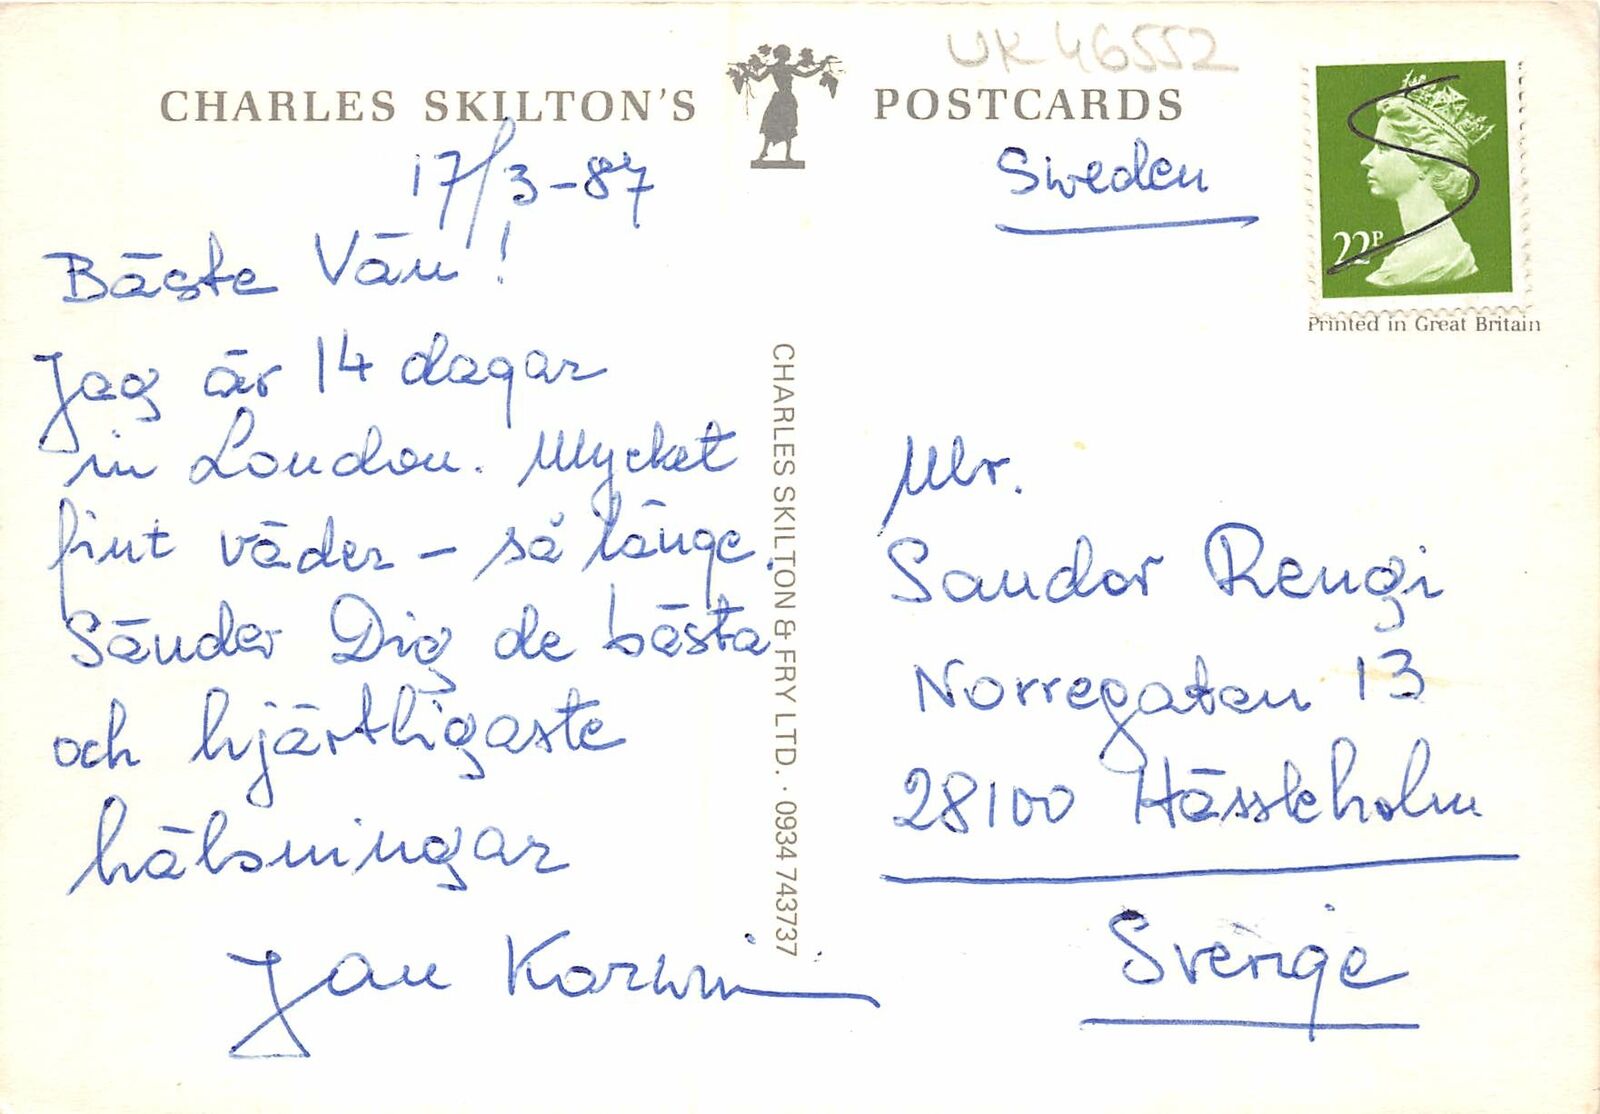 UK 46552
CHARLES SKILTON'S POSTCARDS
17/3-87
Bäste Vän!
Jag är 14 dagar
in London. Mycket
fint väder – så länge.
Sänder Dig de bästa
och hjärtligaste
hälsningar
Jan Korwin
CHARLES SKILTON & FRY LTD. · 0934 743737
Sweden
22P
Printed in Great Britain
Mr.
Sandor Rengi
Norregatan 13
28100 Hässleholm
Sverige